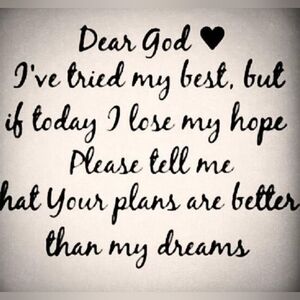 Dear God ♥
I've tried my best, but
if today I lose my hope
Please tell me
hat Your plans are better
than my dreams